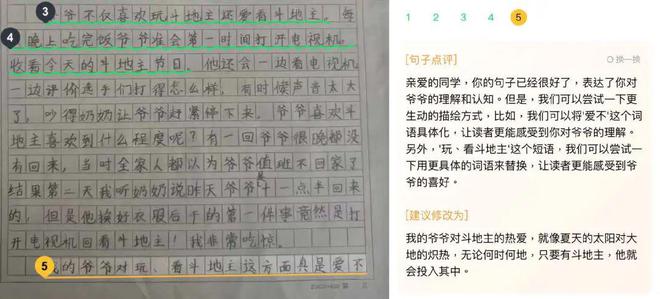 3
爷不仅喜欢玩斗地主还爱看斗地主。每
4
晚上吃完饭爷爷准会第一时间打开电视机。
收看今天的斗地主节目。他还会一边看电视机
一边评价选手们打得怎么样,有时候声音太大
了,吵得奶奶让爷爷赶紧停下来。爷爷喜欢斗
地主喜欢到什么程度呢?有一回爷爷很晚都没
有回来,当时全家人都以为爷爷值班不回家了
结果第二天我听奶奶说昨天爷爷十一点半回来
的,但是他换好衣服后干的第一件事竟然是打
开电视机回看斗地主!我非常吃惊。
5
我的爷爷对玩、看斗地主这方面真是爱不
1 2 3 4 5
[句子点评]
换一换
亲爱的同学,你的句子已经很好了,表达了你对
爷爷的理解和认知。但是,我们可以尝试一下更
生动的描绘方式,比如,我们可以将'爱不'这个词
语具体化,让读者更能感受到你对爷爷的理解。
另外,'玩、看斗地主'这个短语,我们可以尝试一
下用更具体的词语来替换,让读者更能感受到爷
爷的喜好。
[建议修改为]
我的爷爷对斗地主的热爱,就像夏天的太阳对大
地的炽热,无论何时何地,只要有斗地主,他就
会投入其中。